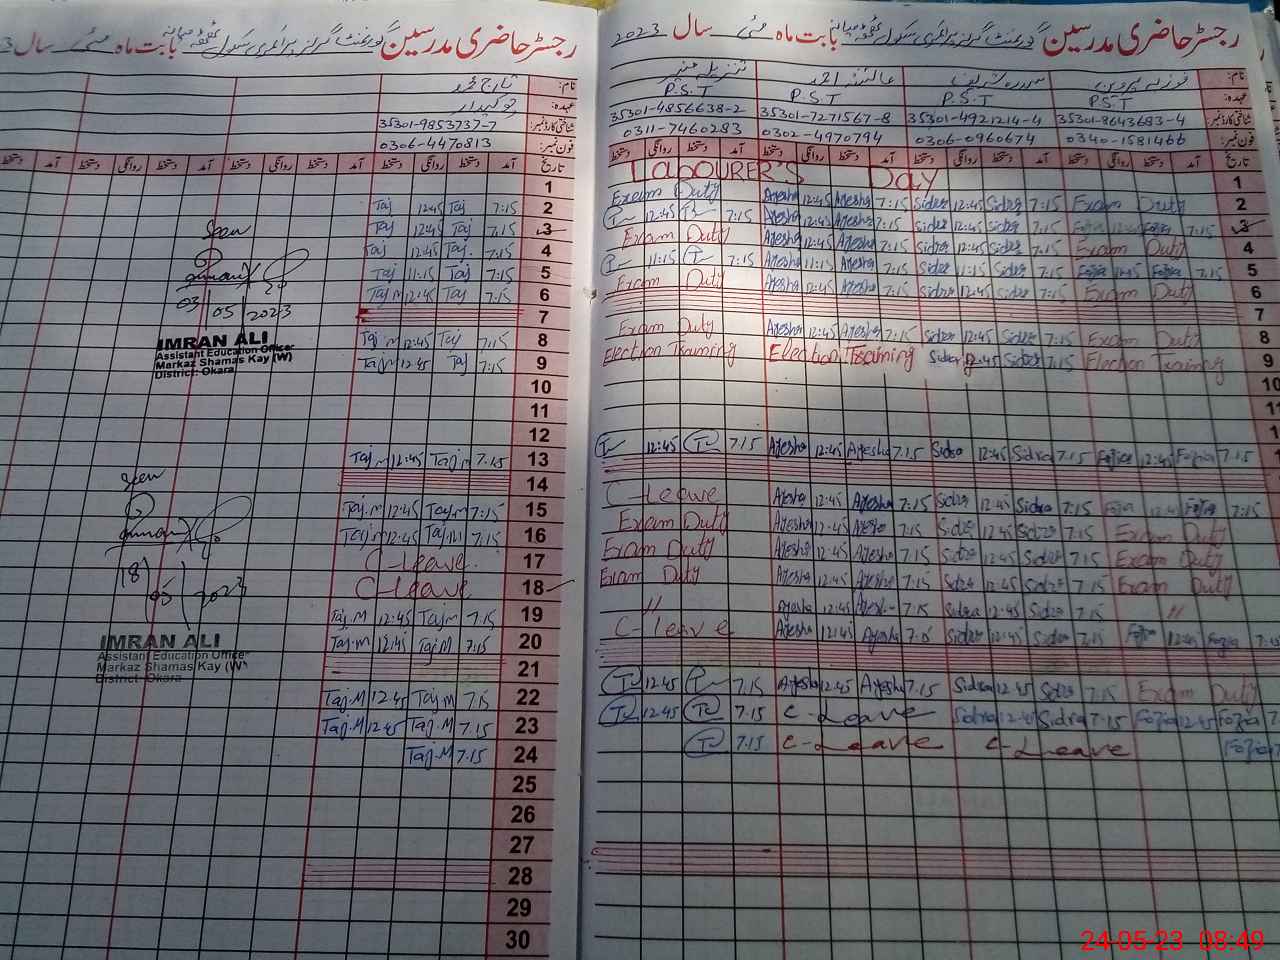 رجسٹر حاضری مدرسین گورنمنٹ گرلز پرائمری سکول بابت ماہ مئی سال 2023
نام: فوزیہ پروین سدرہ شریف عائشہ احمد تنزیلہ منیر
عہدہ: P.S.T P.S.T P.S.T P.S.T
شناختی کارڈ نمبر: 35301-8643683-4 35301-4921214-4 35301-7271567-8 35301-4856638-2
فون نمبر: 0340-1581466 0306-0960674 0302-4970794 0311-7460283
تاریخ آمد دستخط روانگی دستخط آمد دستخط روانگی دستخط آمد دستخط روانگی دستخط آمد دستخط روانگی دستخط
1 LABOURER'S Day
2 Exam Duty Ayesha 12:45 Ayesha 7:15 Sidra 12:45 Sidra 7:15 Exam Duty
3 12:45 7:15 Ayesha 12:45 Ayesha 7:15 Sidra 12:45 Sidra 7:15 Fozia 12:45 Fozia 7:15
4 Exam Duty Ayesha 12:45 Ayesha 7:15 Sidra 12:45 Sidra 7:15 Exam Duty
5 11:15 7:15 Ayesha 11:15 Ayesha 7:15 Sidra 11:15 Sidra 7:15 Fozia 11:15 Fozia 7:15
6 Exam Duty Ayesha 12:45 Ayesha 7:15 Sidra 12:45 Sidra 7:15 Exam Duty
7
8 Exam Duty Ayesha 12:45 Ayesha 7:15 Sidra 12:45 Sidra 7:15 Exam Duty
9 Election Training Election Training Sidra 12:45 Sidra 7:15 Election Training
10
11
12:45 7:15 Ayesha 12:45 Ayesha 7:15 Sidra 12:45 Sidra 7:15 Fozia 12:45 Fozia 7:15
C-Leave Ayesha 12:45 Ayesha 7:15 Sidra 12:45 Sidra 7:15 Fozia 12:45 Fozia 7:15
Exam Duty Ayesha 12:45 Ayesha 7:15 Sidra 12:45 Sidra 7:15 Exam Duty
Exam Duty Ayesha 12:45 Ayesha 7:15 Sidra 12:45 Sidra 7:15 Exam Duty
Exam Duty Ayesha 12:45 Ayesha 7:15 Sidra 12:45 Sidra 7:15 Exam Duty
" Ayesha 12:45 Ayesha 7:15 Sidra 12:45 Sidra 7:15 "
C-Leave Ayesha 12:45 Ayesha 7:15 Sidra 12:45 Sidra 7:15 Fozia 12:45 Fozia 7:15
12:45 7:15 Ayesha 12:45 Ayesha 7:15 Sidra 12:45 Sidra 7:15 Exam Duty
12:45 7:15 C-Leave Sidra 12:45 Sidra 7:15 Fozia 12:45 Fozia
7:15 C-Leave C-Leave Fozia
رجسٹر حاضری مدرسین گورنمنٹ گرلز پرائمری سکول بابت ماہ مئی سال 3
نام: تاج محمد
عہدہ: چوکیدار
شناختی کارڈ نمبر: 35301-9853737-7
فون نمبر: 0306-4470813
تاریخ آمد دستخط روانگی دستخط آمد دستخط روانگی دستخط آمد دستخط روانگی دستخط
1
2 Taj 12:45 Taj 7:15
3 Taj 12:45 Taj 7:15
4 Taj 12:45 Taj 7:15
5 Taj 11:15 Taj 7:15
6 Taj.m 12:45 Taj 7:15
7
8 Taj.M 12:45 Taj 7:15
9 Taj.m 12:45 Taj 7:15
10
11
12
13 Taj.m 12:45 Taj.m 7:15
14
15 Taj.m 12:45 Taj.m 7:15
16 Taj.m 12:45 Taj.M 7:15
17 C-Leave.
18 C-Leave
19 Taj.M 12:45 Taj.m 7:15
20 Taj.M 12:45 Taj.M 7:15
21
22 Taj.M 12:45 Taj.m 7:15
23 Taj.M 12:45 Taj.M 7:15
24 Taj.M 7:15
25
26
27
28
29
30
Seen
03/05/2023
IMRAN ALI
Assistant Education Officer
Markaz Shamas Kay (W)
District: Okara
Seen
18/05/2023
IMRAN ALI
Assistant Education Officer
Markaz Shamas Kay (W)
District: Okara
24-05-23 08:49